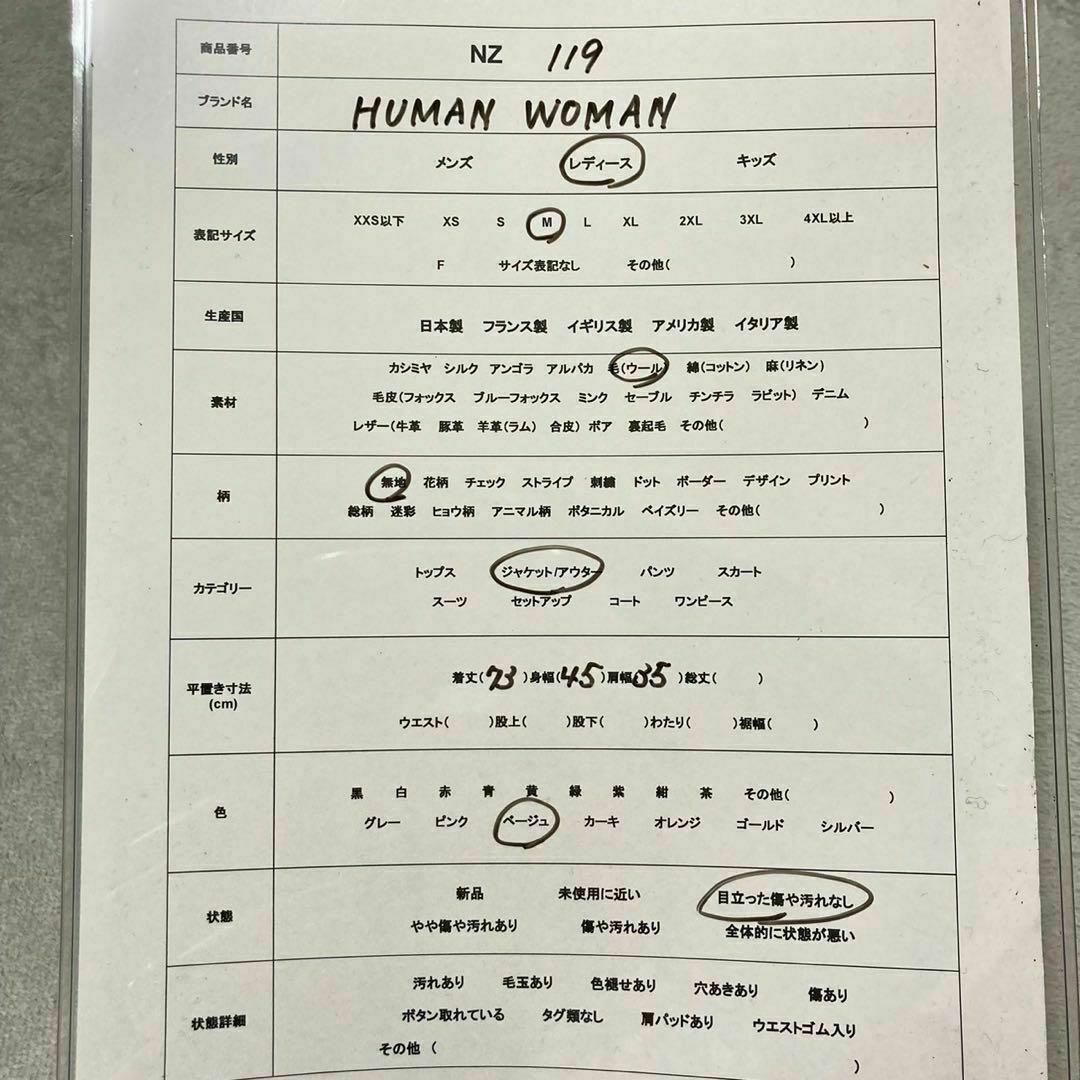 商品番号 NZ 119
ブランド名 HUMAN WOMAN
性別 メンズ レディース キッズ
表記サイズ XXS以下 XS S M L XL 2XL 3XL 4XL以上
F サイズ表記なし その他( )
生産国 日本製 フランス製 イギリス製 アメリカ製 イタリア製
素材 カシミヤ シルク アンゴラ アルパカ 毛(ウール) 綿(コットン) 麻(リネン)
毛皮(フォックス ブルーフォックス ミンク セーブル チンチラ ラビット) デニム
レザー(牛革 豚革 羊革(ラム) 合皮) ボア 裏起毛 その他( )
柄 無地 花柄 チェック ストライプ 刺繍 ドット ボーダー デザイン プリント
総柄 迷彩 ヒョウ柄 アニマル柄 ボタニカル ペイズリー その他( )
カテゴリー トップス ジャケット/アウター パンツ スカート
スーツ セットアップ コート ワンピース
平置き寸法 (cm) 着丈(73)身幅(45)肩幅(35)総丈( )
ウエスト( )股上( )股下( )わたり( )裾幅( )
色 黒 白 赤 青 黄 緑 紫 紺 茶 その他( )
グレー ピンク ベージュ カーキ オレンジ ゴールド シルバー
状態 新品 未使用に近い 目立った傷や汚れなし
やや傷や汚れあり 傷や汚れあり 全体的に状態が悪い
状態詳細 汚れあり 毛玉あり 色褪せあり 穴あきあり 傷あり
ボタン取れている タグ類なし 肩パッドあり ウエストゴム入り
その他 ( )